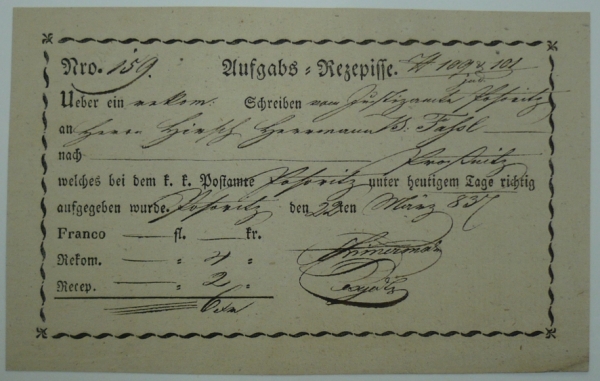 Nro. 159. Aufgabs-Rezepisse. 109
Ueber ein rekom: Schreiben vom Justizamte Posoritz
an Herrn Hirsch Herrmann B. Fassl
nach Prosnitz
welches bei dem k. k. Postamte Posoritz unter heutigem Tage richtig
aufgegeben wurde. Posoritz den 22ten März 837
Franco — fl. — kr.
Rekom. — " 4 "
Recep. — " 2 "
6 xr